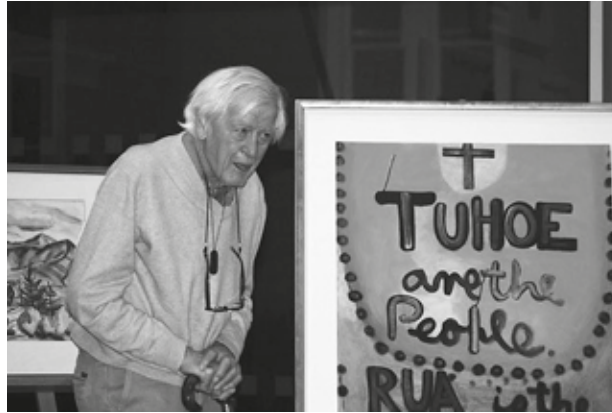 TUHOE
are the
People.
RUA is the